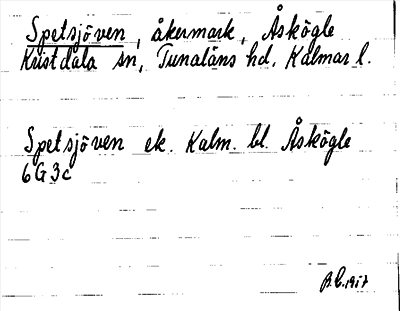 Spetsjöven, åkermark, Åskögle
Kristdala sn, Tunaläns hd, Kalmar l.
Spetsjöven ek. Kalm. bl. Åskögle
6G3c